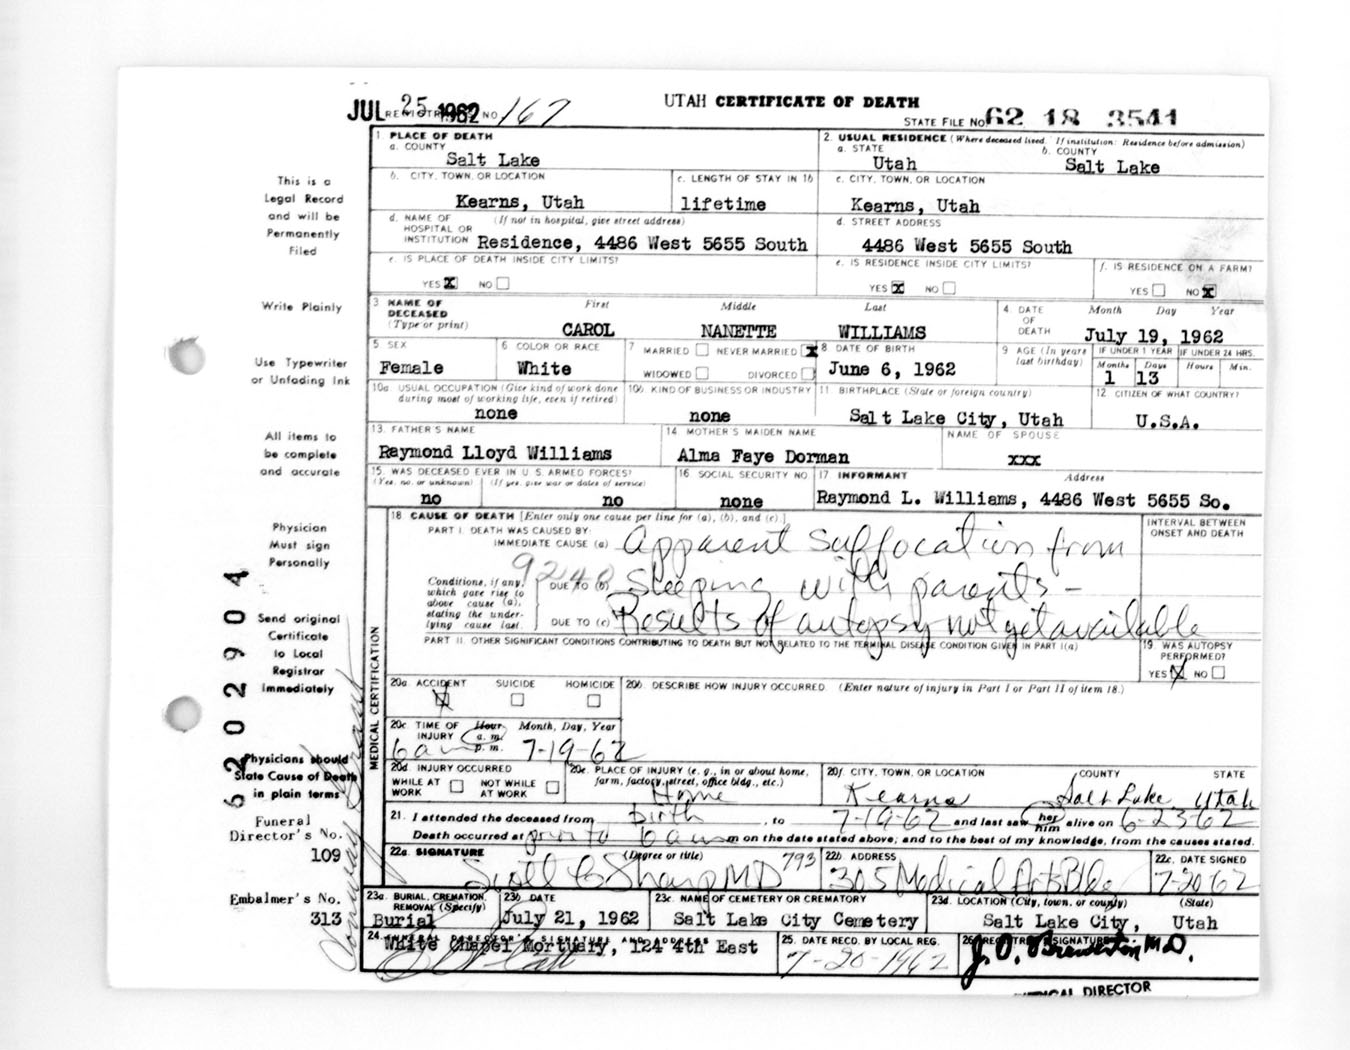 JUL 25 1962 REGISTRAR'S NO. 167
UTAH CERTIFICATE OF DEATH
STATE FILE NO. 62 18 3541
This is a
Legal Record
and will be
Permanently
Filed
Write Plainly
Use Typewriter
or Unfading Ink
All items to
be complete
and accurate
Physician
Must sign
Personally
Send original
Certificate
to Local
Registrar
Immediately
Physicians should
State Cause of Death
in plain terms
Funeral
Director's No.
109
Embalmer's No.
313
6202904
1 PLACE OF DEATH
a. COUNTY
Salt Lake
2. USUAL RESIDENCE (Where deceased lived. If institution: Residence before admission)
a. STATE b. COUNTY
Utah Salt Lake
b. CITY, TOWN, OR LOCATION
Kearns, Utah
c. LENGTH OF STAY IN 1b
lifetime
c. CITY, TOWN, OR LOCATION
Kearns, Utah
d. NAME OF HOSPITAL OR INSTITUTION (If not in hospital, give street address)
Residence, 4486 West 5655 South
d. STREET ADDRESS
4486 West 5655 South
e. IS PLACE OF DEATH INSIDE CITY LIMITS?
YES X NO
e. IS RESIDENCE INSIDE CITY LIMITS?
YES X NO
f. IS RESIDENCE ON A FARM?
YES NO X
3 NAME OF DECEASED (Type or print)
First Middle Last
CAROL NANETTE WILLIAMS
4. DATE OF DEATH
Month Day Year
July 19, 1962
5 SEX
Female
6 COLOR OR RACE
White
7 MARRIED NEVER MARRIED X
WIDOWED DIVORCED
8 DATE OF BIRTH
June 6, 1962
9 AGE (In years last birthday)
IF UNDER 1 YEAR IF UNDER 24 HRS.
Months Days Hours Min.
1 13
10a USUAL OCCUPATION (Give kind of work done during most of working life, even if retired)
none
10b KIND OF BUSINESS OR INDUSTRY
none
11 BIRTHPLACE (State or foreign country)
Salt Lake City, Utah
12 CITIZEN OF WHAT COUNTRY?
U.S.A.
13. FATHER'S NAME
Raymond Lloyd Williams
14 MOTHER'S MAIDEN NAME
Alma Faye Dorman
NAME OF SPOUSE
xxx
15 WAS DECEASED EVER IN U S ARMED FORCES?
(Yes, no, or unknown) (If yes, give war or dates of service)
no no
16 SOCIAL SECURITY NO.
none
17 INFORMANT Address
Raymond L. Williams, 4486 West 5655 So.
MEDICAL CERTIFICATION
18 CAUSE OF DEATH [Enter only one cause per line for (a), (b), and (c).]
INTERVAL BETWEEN ONSET AND DEATH
PART I. DEATH WAS CAUSED BY:
IMMEDIATE CAUSE (a) Apparent suffocation from
9240
Conditions, if any, which gave rise to above cause (a), stating the underlying cause last.
DUE TO (b) Sleeping with parents -
DUE TO (c) Results of autopsy not yet available
PART II. OTHER SIGNIFICANT CONDITIONS CONTRIBUTING TO DEATH BUT NOT RELATED TO THE TERMINAL DISEASE CONDITION GIVEN IN PART I(a)
19. WAS AUTOPSY PERFORMED?
YES X NO
20a ACCIDENT SUICIDE HOMICIDE
X
20b DESCRIBE HOW INJURY OCCURRED (Enter nature of injury in Part I or Part II of item 18.)
20c TIME OF INJURY Hour a.m. p.m. Month, Day, Year
6 am 7-19-62
20d INJURY OCCURRED
WHILE AT WORK NOT WHILE AT WORK
20e. PLACE OF INJURY (e. g., in or about home, farm, factory, street, office bldg., etc.)
Home
20f. CITY, TOWN, OR LOCATION COUNTY STATE
Kearns Salt Lake Utah
21. I attended the deceased from birth, to 7-19-62 and last saw her him alive on 6-23-62
Death occurred at prior to 6 am m on the date stated above; and to the best of my knowledge, from the causes stated.
22a SIGNATURE (Degree or title)
Scott G Sharp MD 793
22b ADDRESS
305 Medical Arts Bldg
22c. DATE SIGNED
7-20-62
23a. BURIAL, CREMATION, REMOVAL (Specify)
Burial
23b DATE
July 21, 1962
23c. NAME OF CEMETERY OR CREMATORY
Salt Lake City Cemetery
23d. LOCATION (City, town, or county) (State)
Salt Lake City, Utah
24 FUNERAL DIRECTOR'S SIGNATURE AND ADDRESS
White Chapel Mortuary, 124 4th East
25. DATE RECD. BY LOCAL REG.
7-20-1962
26 REGISTRAR'S SIGNATURE
MEDICAL DIRECTOR